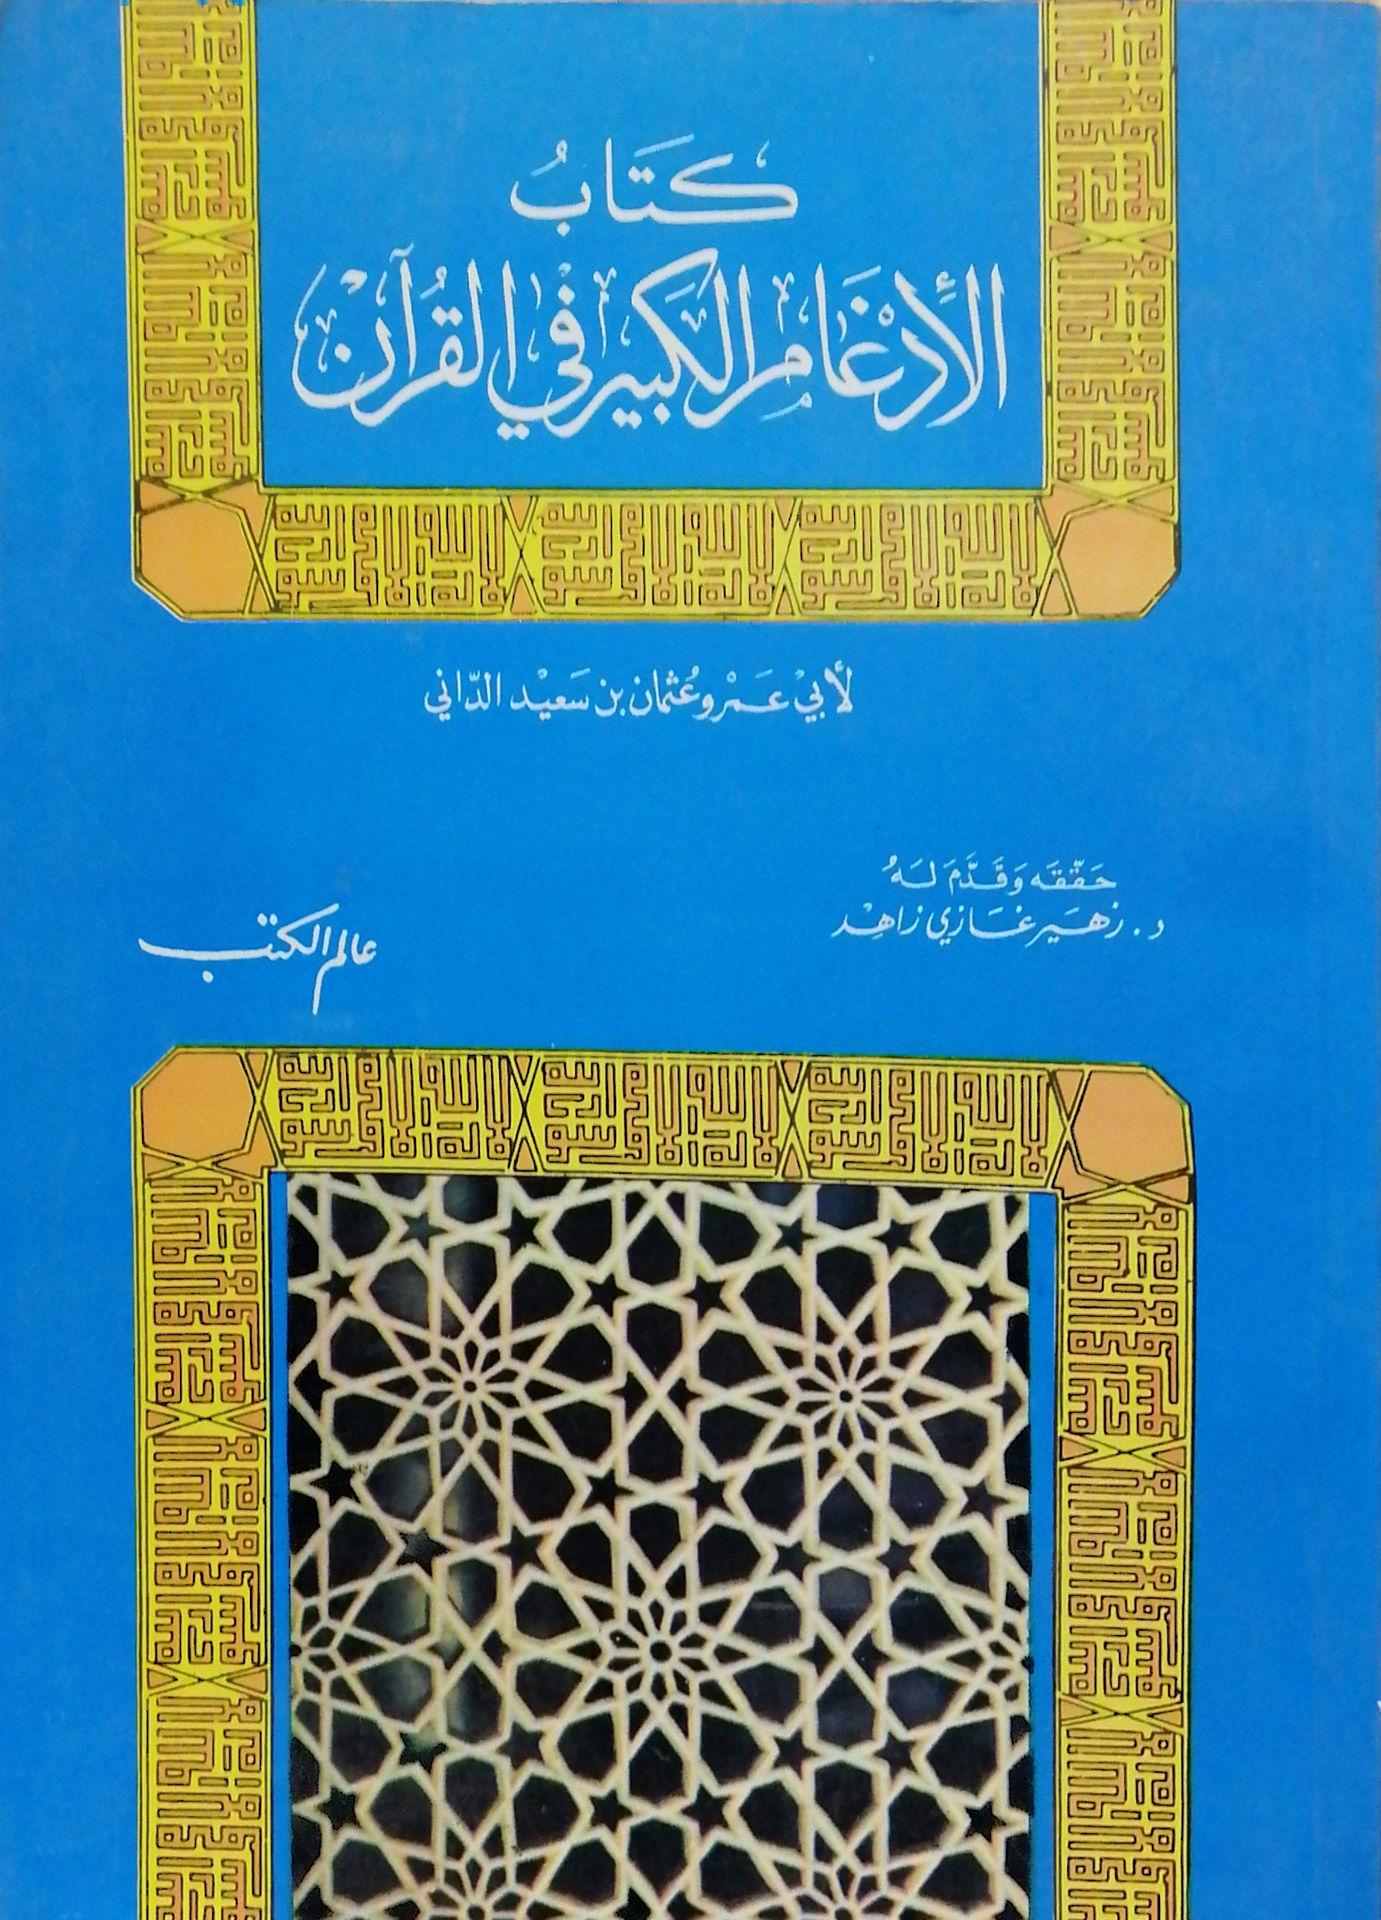 كتَابُ
الإدْغَام الكَبير في القُرآن
لأبيْ عَمْرو عُثمان بن سَعيْد الدّاني
حَقّقَه وَقَدَّمَ لَهُ
د. زهَير غَازي زاهِد
عالم الكتب